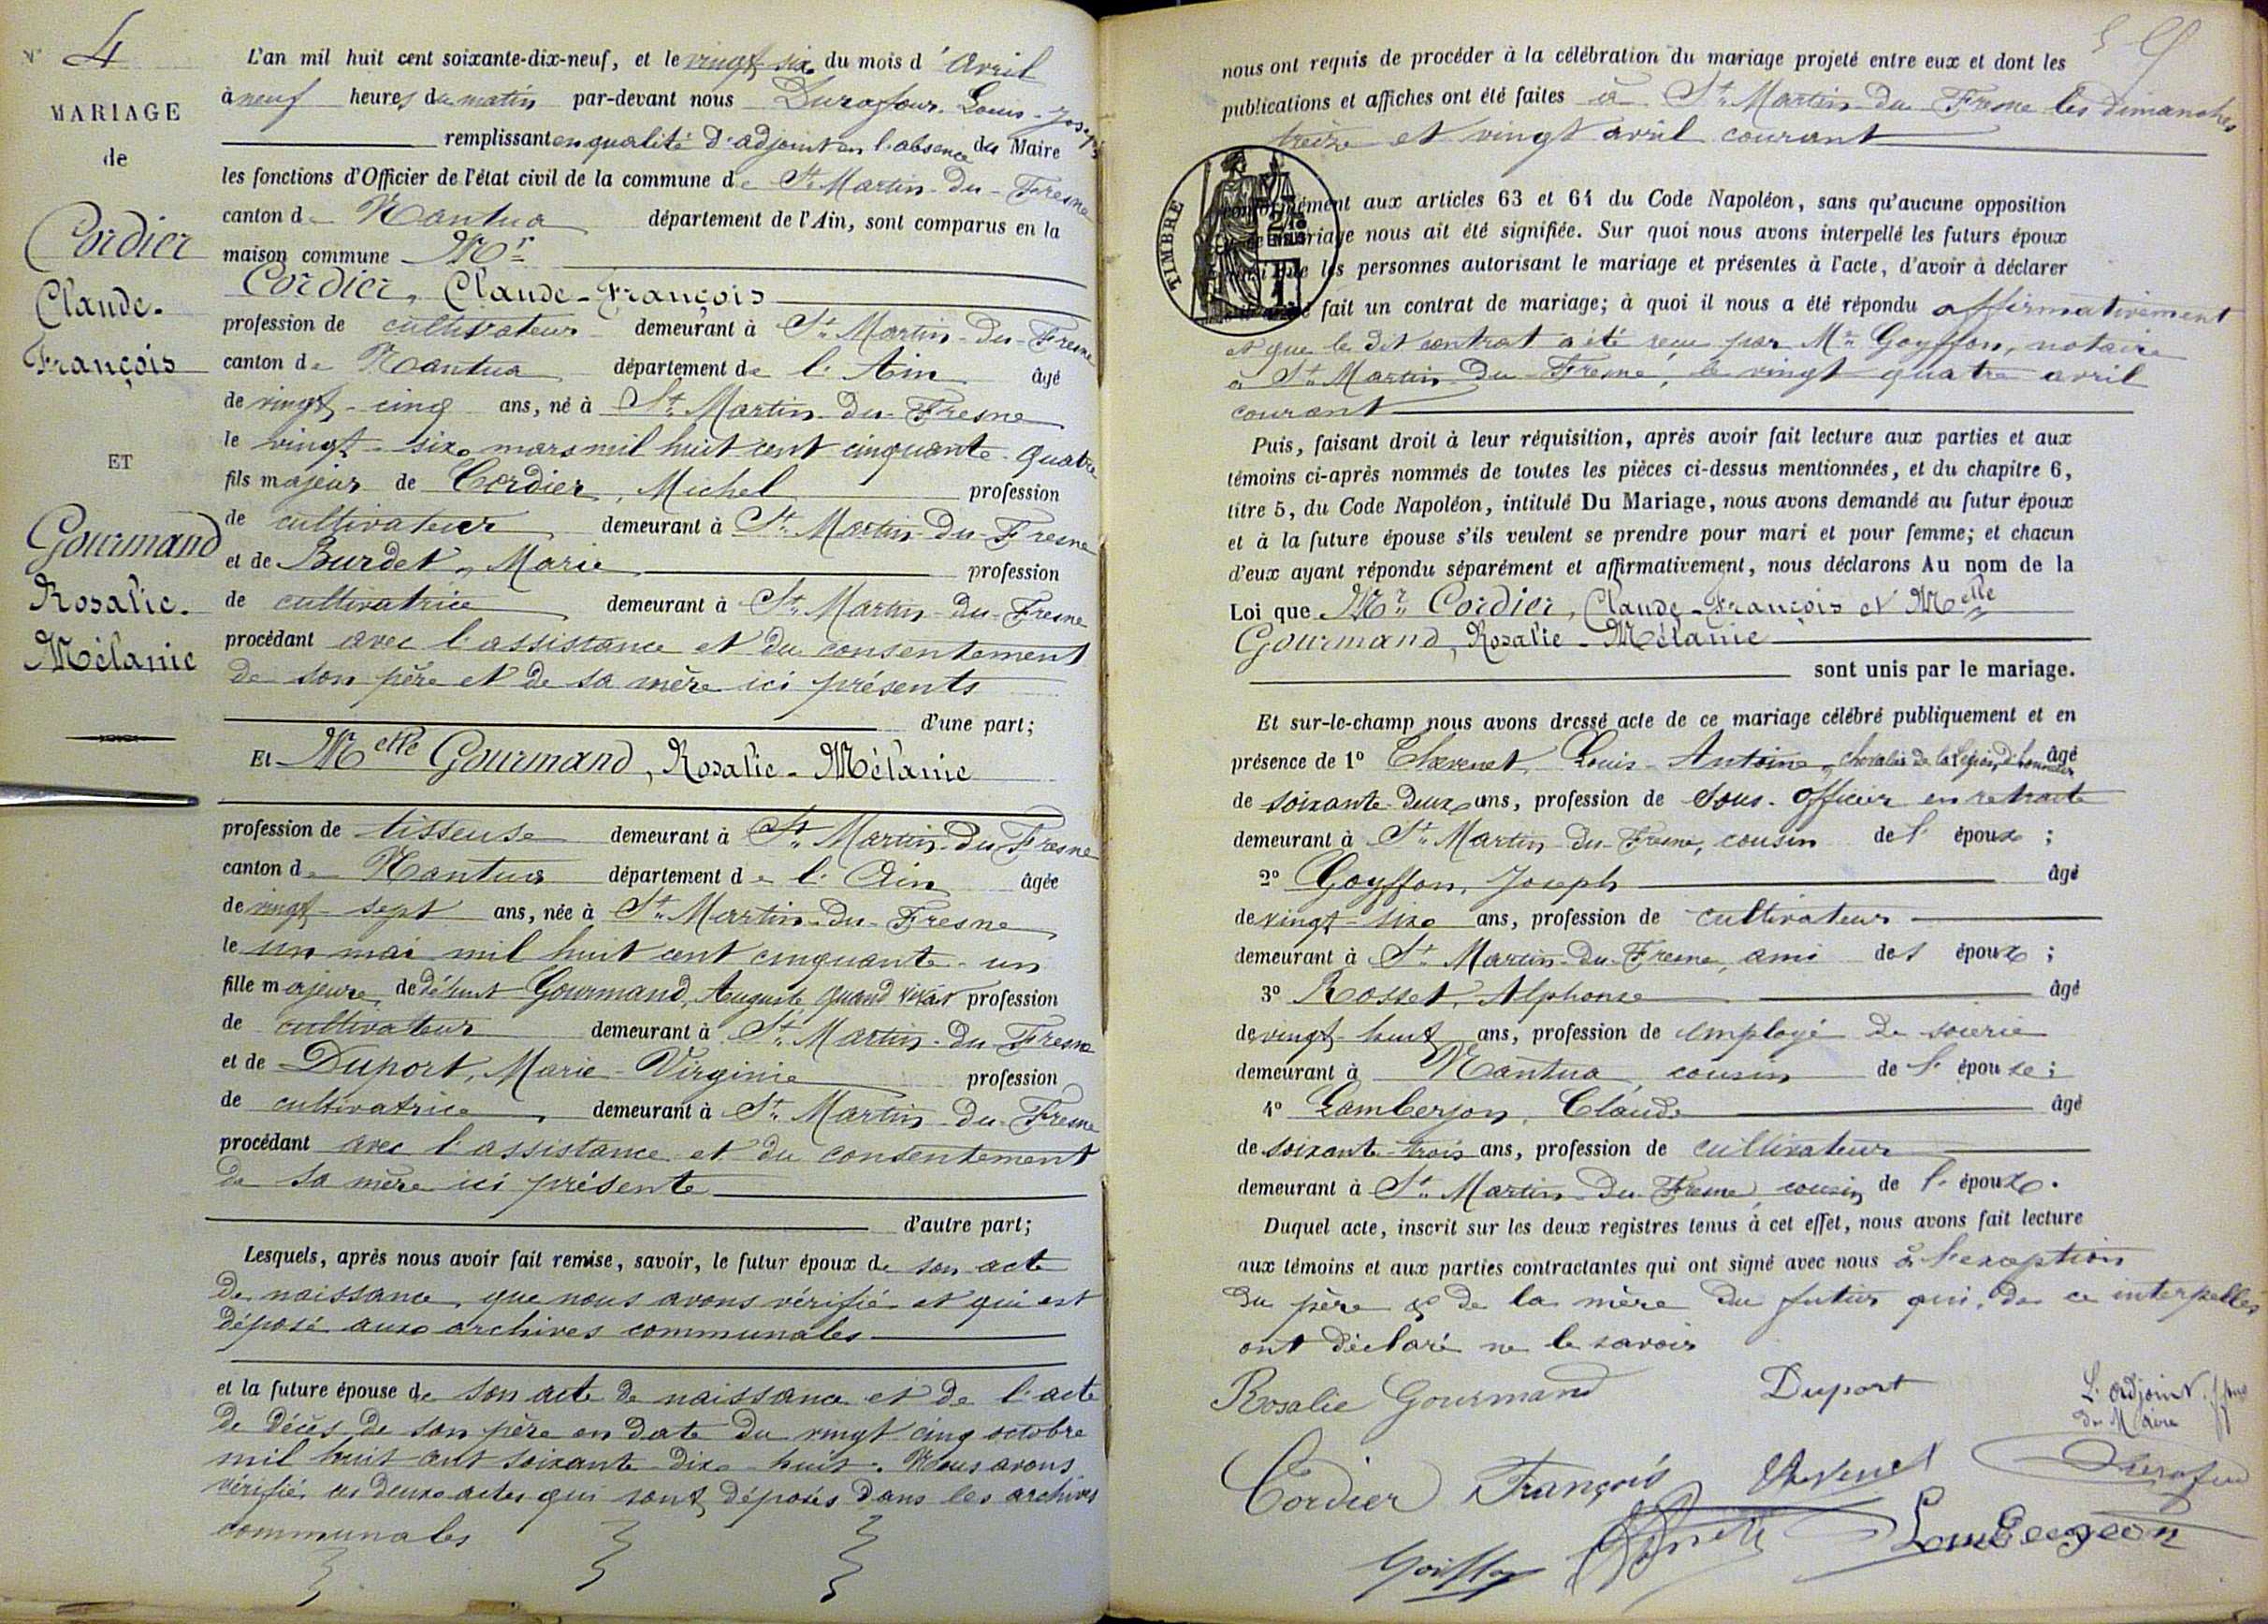 N° 4
MARIAGE
de
Cordier
Claude-
François
ET
Gourmand
Rosalie-
Mélanie
L'an mil huit cent soixante-dix-neuf, et le vingt six du mois d'Avril
à neuf heures du matin par-devant nous Durafour Louis-Joseph
remplissant en qualité d'adjoint en l'absence du Maire
les fonctions d'Officier de l'état civil de la commune de St Martin-du-Fresne
canton de Nantua département de l'Ain, sont comparus en la
maison commune Mr
Cordier, Claude-François
profession de cultivateur demeurant à St Martin-du-Fresne
canton de Nantua département de l'Ain âgé
de vingt-cinq ans, né à St Martin-du-Fresne
le vingt-six mars mil huit cent cinquante-quatre
fils majeur de Cordier, Michel profession
de cultivateur demeurant à St Martin-du-Fresne
et de Burdet, Marie profession
de cultivatrice demeurant à St Martin-du-Fresne
procédant avec l'assistance et du consentement
de son père et de sa mère ici présents
d'une part;
Et Melle Gourmand, Rosalie-Mélanie
profession de tisseuse demeurant à St Martin-du-Fresne
canton de Nantua département de l'Ain âgée
de vingt-sept ans, née à St Martin-du-Fresne
le un mai mil huit cent cinquante-un
fille majeure de défunt Gourmand, Auguste quand vivait profession
de cultivateur demeurant à St Martin-du-Fresne
et de Duport, Marie-Virginie profession
de cultivatrice, demeurant à St Martin-du-Fresne
procédant avec l'assistance et du consentement
de sa mère ici présente
d'autre part;
Lesquels, après nous avoir fait remise, savoir, le futur époux de son acte
de naissance que nous avons vérifié et qui est
déposé aux archives communales
et la future épouse de son acte de naissance et de l'acte
de décès de son père en date du vingt-cinq octobre
mil huit cent soixante-dix-huit. Nous avons
vérifié ces deux actes qui sont déposés dans les archives
communales
nous ont requis de procéder à la célébration du mariage projeté entre eux et dont les
publications et affiches ont été faites à St Martin-du-Fresne les dimanches
treize et vingt avril courant
TIMBRE
conformément aux articles 63 et 64 du Code Napoléon, sans qu'aucune opposition
ce mariage nous ait été signifiée. Sur quoi nous avons interpellé les futurs époux
ainsi que les personnes autorisant le mariage et présentes à l'acte, d'avoir à déclarer
fait un contrat de mariage; à quoi il nous a été répondu affirmativement
et que le dit contrat a été reçu par Me Goyffon, notaire
à St Martin-du-Fresne, le vingt-quatre avril
courant
Puis, faisant droit à leur réquisition, après avoir fait lecture aux parties et aux
témoins ci-après nommés de toutes les pièces ci-dessus mentionnées, et du chapitre 6,
titre 5, du Code Napoléon, intitulé Du Mariage, nous avons demandé au futur époux
et à la future épouse s'ils veulent se prendre pour mari et pour femme; et chacun
d'eux ayant répondu séparément et affirmativement, nous déclarons Au nom de la
Loi que Mr Cordier, Claude-François et Melle
Gourmand, Rosalie-Mélanie
sont unis par le mariage.
Et sur-le-champ nous avons dressé acte de ce mariage célébré publiquement et en
présence de 1° Chevenet, Louis-Antoine, chevalier de la Légion d'honneur âgé
de soixante-deux ans, profession de sous-officier en retraite
demeurant à St Martin-du-Fresne, cousin de l'époux;
2° Goyffon, Joseph âgé
de vingt-six ans, profession de cultivateur
demeurant à St Martin-du-Fresne, ami des époux;
3° Rosset, Alphonse âgé
de vingt-huit ans, profession de employé de soierie
demeurant à Nantua, cousin de l'épouse;
4° Lamberjon, Claude âgé
de soixante-trois ans, profession de cultivateur
demeurant à St Martin-du-Fresne, cousin de l'époux.
Duquel acte, inscrit sur les deux registres tenus à cet effet, nous avons fait lecture
aux témoins et aux parties contractantes qui ont signé avec nous à l'exception
du père & de la mère du futur qui, de ce interpellés
ont déclaré ne le savoir
Rosalie Gourmand Duport L'adjoint
du Maire
Cordier François Chevenet Durafour
Goiffon Lambergeon